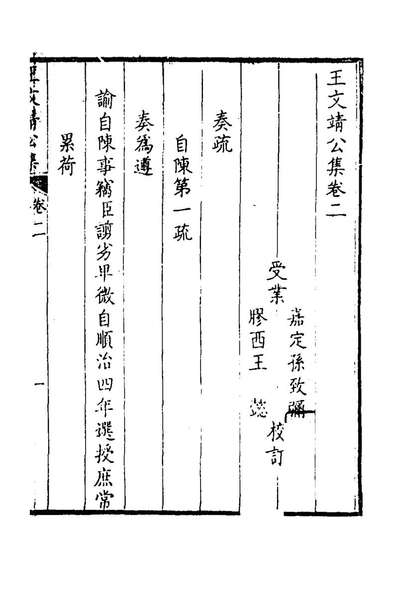 王文靖公集卷二
嘉定孫致彌
受業
校訂
膠西王懿
奏疏
自陳第一疏
奏爲遵
諭自陳事竊臣謭劣卑微自順治四年選授庶常
累荷
王文靖公集
卷二
一